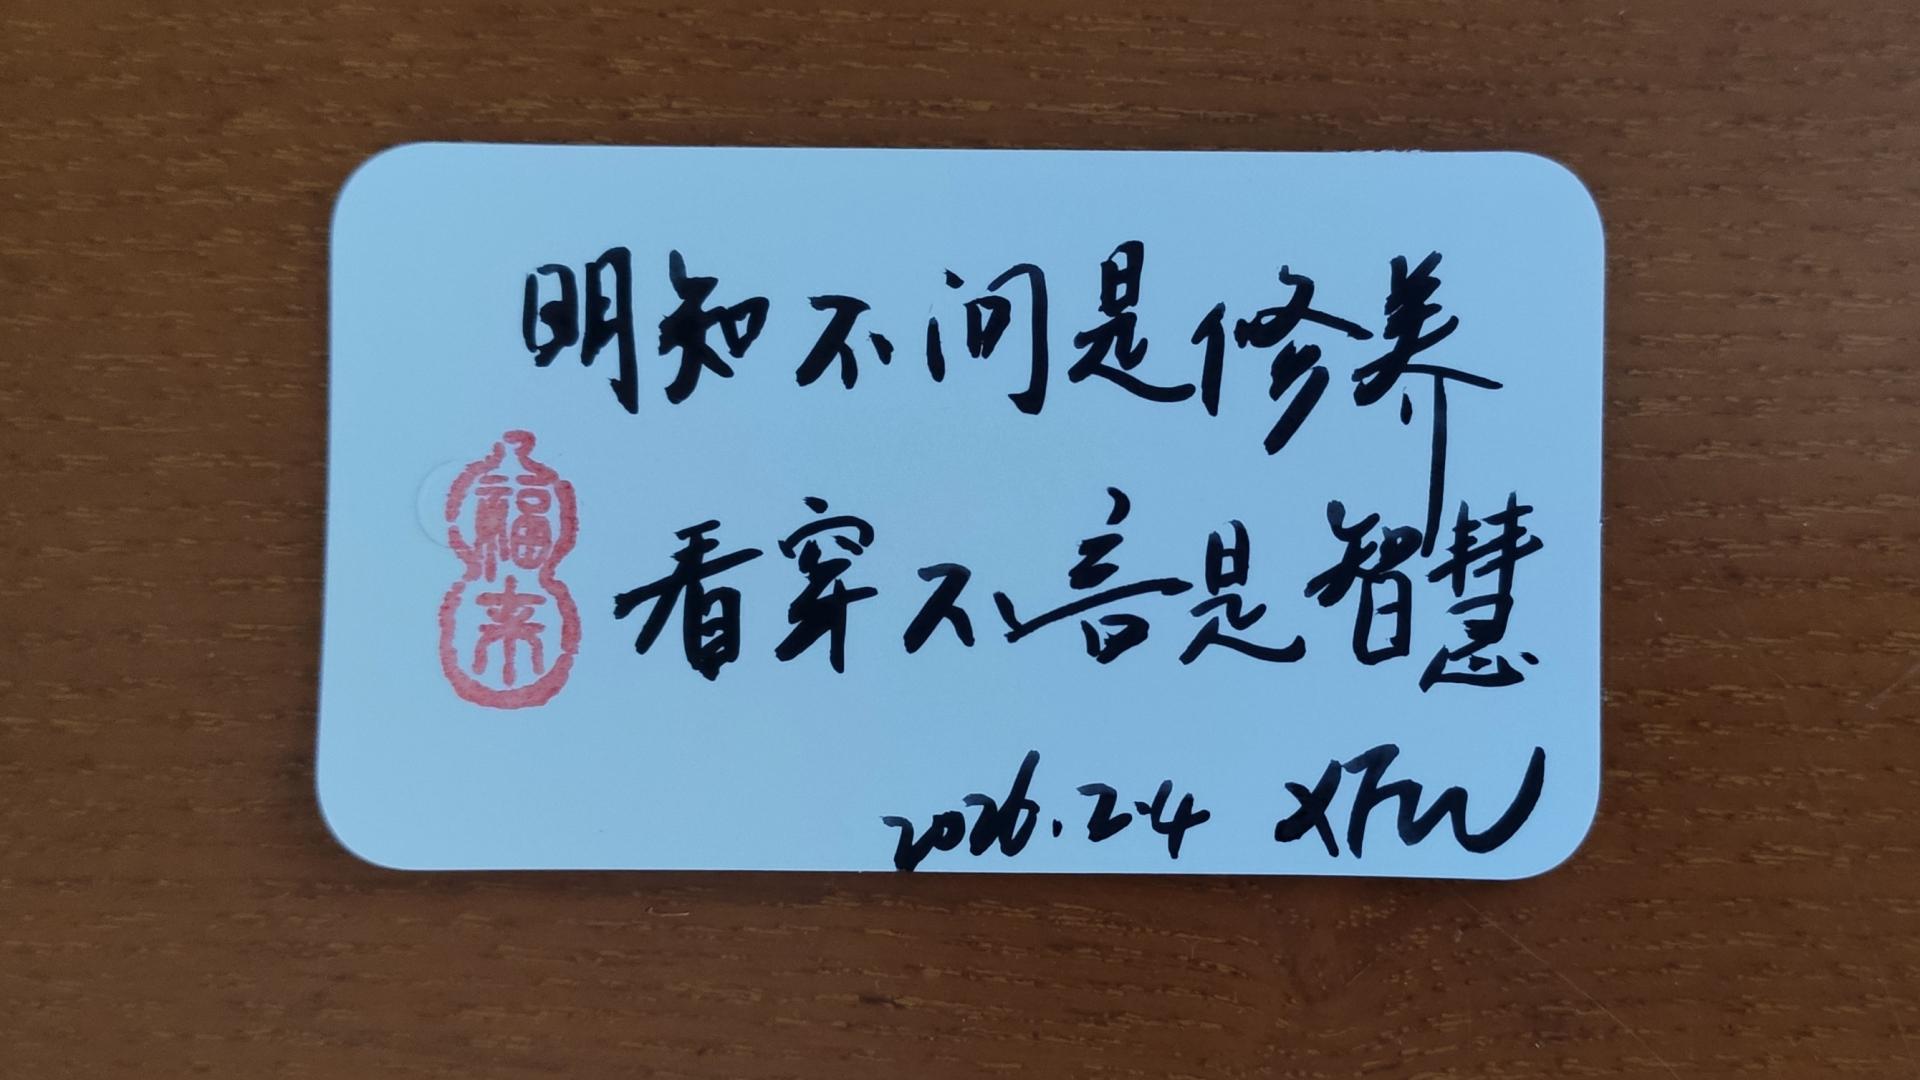 明知不问是修养
福来
看穿不言是智慧
2026.2.4 XFW